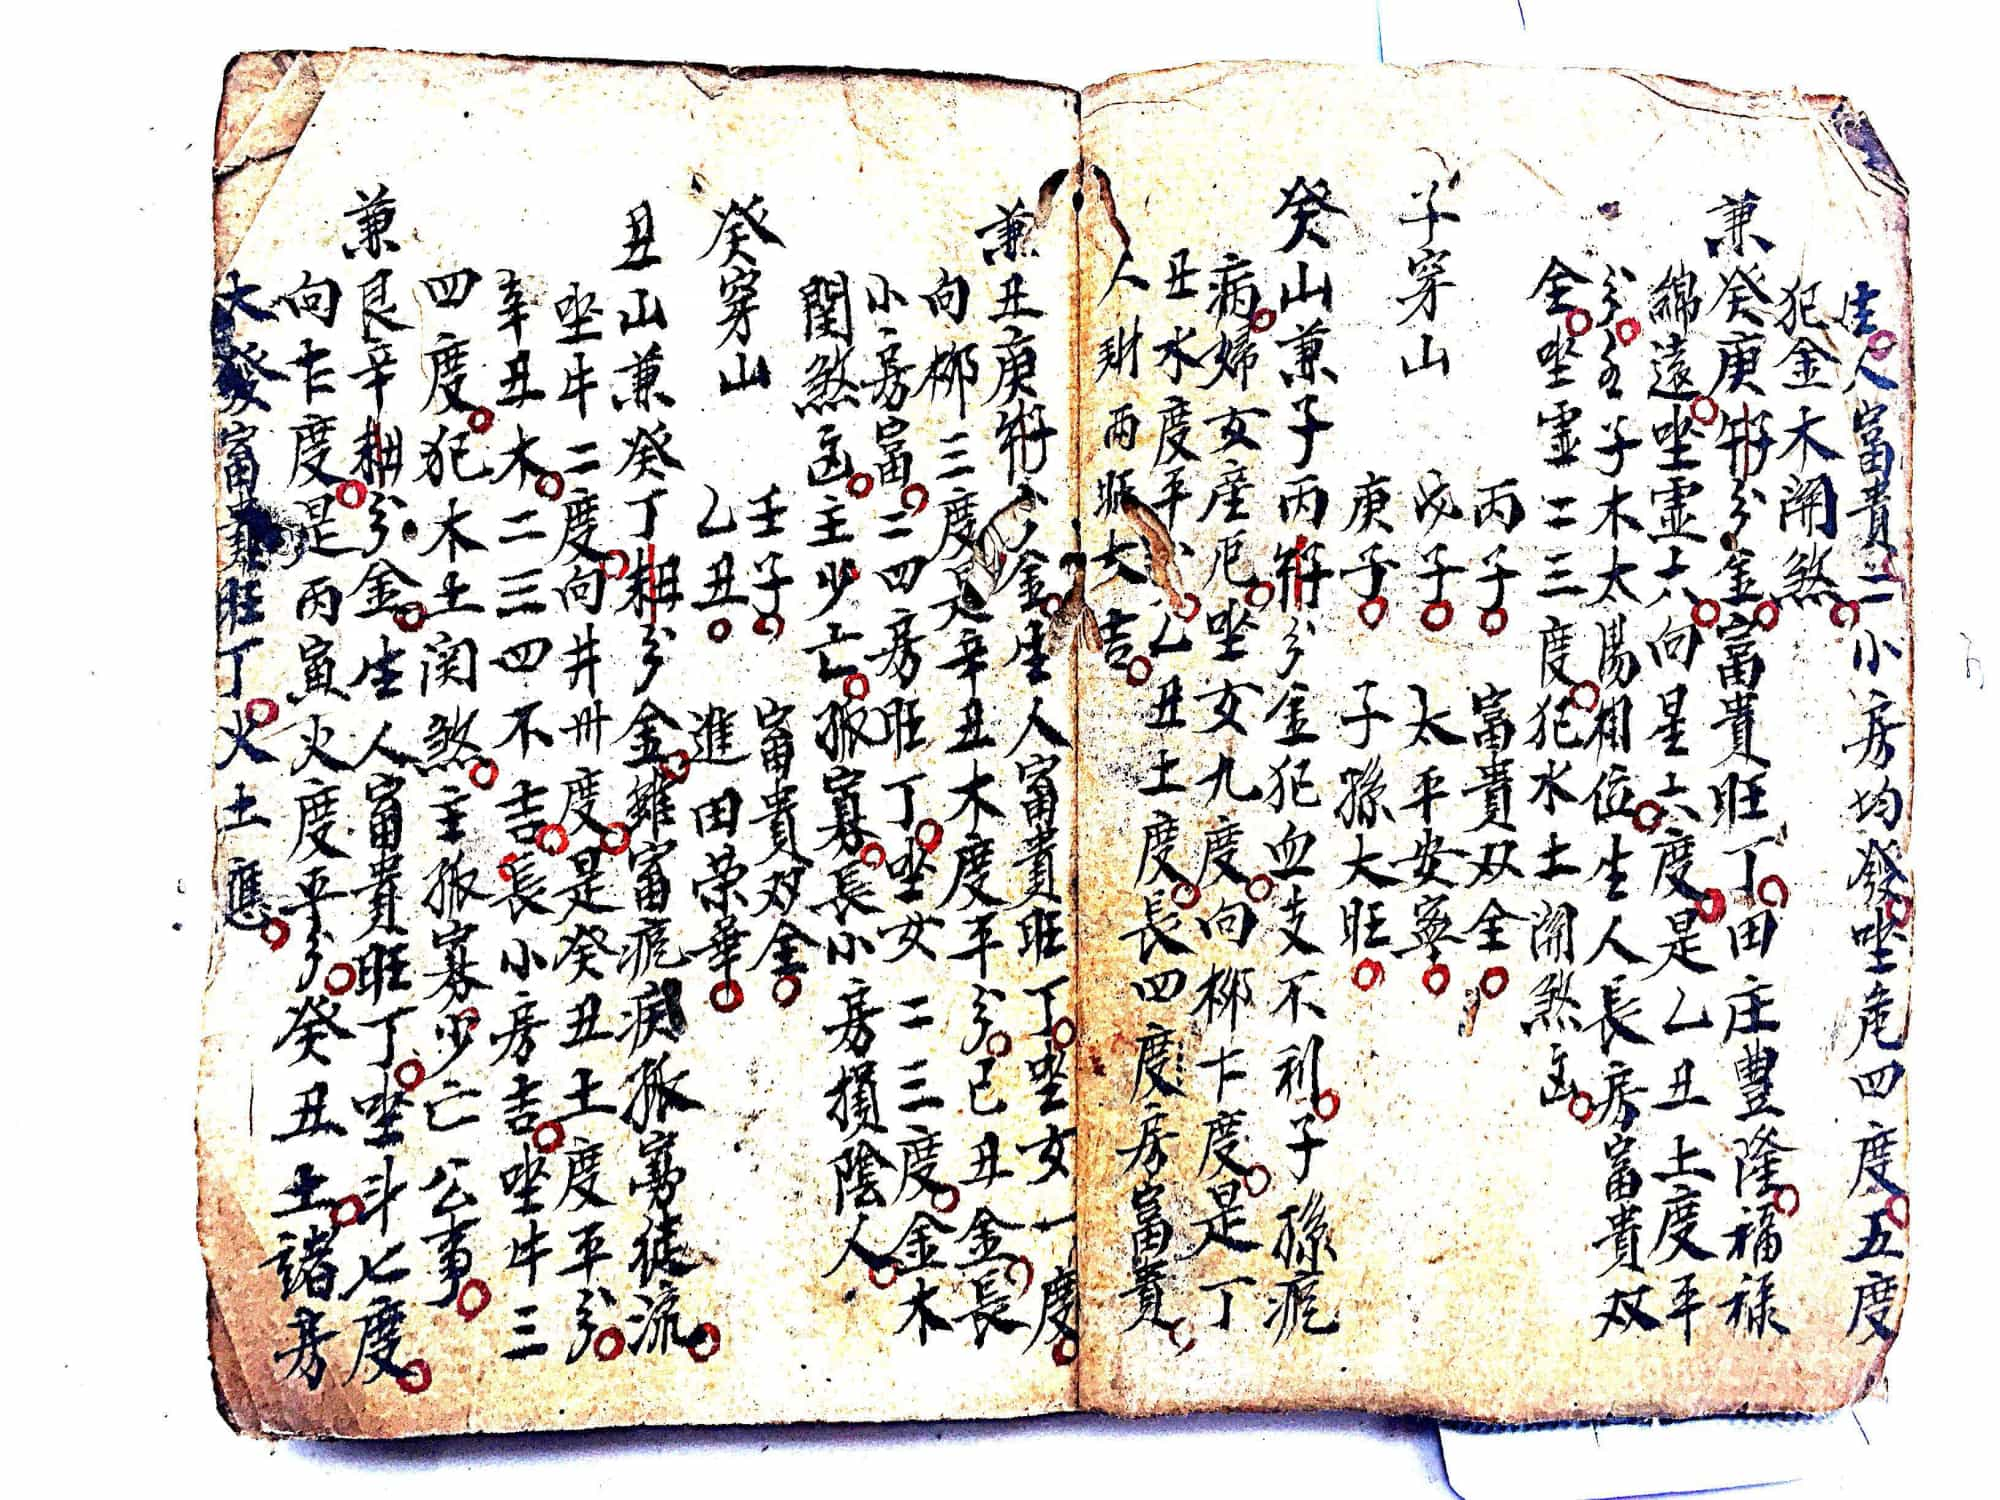 生人富貴二小房均發坐危四度五度
犯金木關煞
兼癸庚分金富貴旺丁田庄豐隆福祿
綿遠坐虛六向星六度是乙丑土度平
分子木太陽相位生人長房富貴双
全坐虛二三度犯水土關煞凶
子穿山
丙子富貴双全
戊子太平安寧
庚子子孫大旺
癸山兼子丙分金犯血支不利子孫瘧
病婦女產厄坐女九度向柳十度是丁
丑水度平分乙丑土度長四度房富貴
人財兩旺大吉
兼丑庚金生人富貴旺丁坐女一度
向柳三度是辛丑木度平分已丑金長
小房富二四房旺丁坐女二三度金木
関煞凶主少亡孤寡長小房損陰人
癸穿山
壬子富貴双全
乙丑進田荣華
丑山兼癸丁分金雖富瘧疾孤寡徒流
坐牛二度向井卅度是癸丑土度平分
辛丑木二三四不吉長小房吉坐牛三
四度犯木土関煞主孤寡少亡公事
兼艮辛分金生人富貴旺丁坐斗七度
向十度是丙寅火度平分癸丑土諸房
大發富貴旺丁火土應